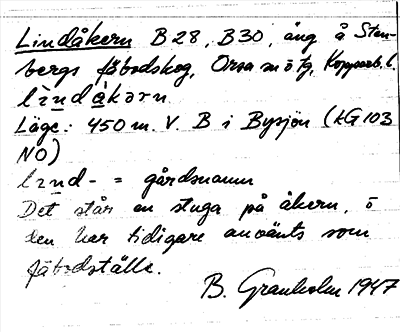 Lindåkern B28, B30, äng å Sten-
bergs fäbodskog, Orsa sn ö tg, Kopparb. l.
lìndàkəɽn.
Läge: 450 m. V. B i Bysjön (kG 103
NO)
lind- = gårdsnamn
Det står en stuga på åkern, o
den har tidigare använts som
fäbodställe.
B. Granholm 1947